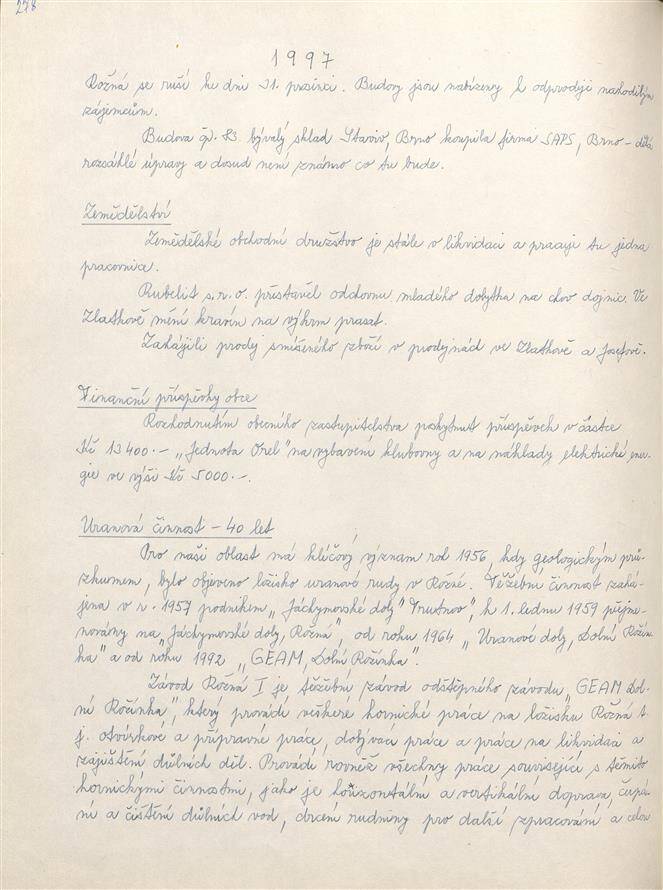 278
1997
Rožná se ruší ke dni 31. prosinci. Budovy jsou nabízeny k odprodeji nahodilým
zájemcům.
Budova čp. 83 bývalý sklad Staviv, Brno koupila firma SAPS, Brno - dělá
rozsáhlé úpravy a dosud není známo co tu bude.
Zemědělství
Zemědělské obchodní družstvo je stále v likvidaci a pracuje tu jedna
pracovnice.
Rubelit s.r.o. přistavěl odchovnu mladého dobytka na chov dojnic. Ve
Zlatkově mění kravín na výkrm prasat.
Zahájili prodej smíšeného zboží v prodejnách ve Zlatkově a Josefově.
Finanční příspěvky obce
Rozhodnutím obecního zastupitelstva poskytnut příspěvek v částce
Kč 13400.- „Jednota Orel" na vybavení klubovny a na náklady elektrické ener-
gie ve výši Kč 5000.-.
Uranová činnost - 40 let
Pro naši oblast má klíčový význam rok 1956, kdy geologickým prů-
zkumem, bylo objeveno ložisko uranové rudy v Rožné. Těžební činnost zahá-
jena v r. 1957 podnikem „Jáchymovské doly" Trutnov", k 1. lednu 1959 přejme-
novány na „Jáchymovské doly, Rožná", od roku 1964 „Uranové doly, Dolní Rožín-
ka" a od roku 1992 „GEAM, Dolní Rožínka".
Závod Rožná I je těžební závod odštěpného závodu „GEAM Dol-
ní Rožínka", který provádí veškeré hornické práce na ložisku Rožná t.
j. otvírkové a přípravné práce, dobývací práce a práce na likvidaci a
zajištění důlních děl. Provádí rovněž všechny práce související s těmito
hornickými činnostmi, jako je horizontální a vertikální doprava, čerpá-
ní a čištění důlních vod, drcení rudniny pro další zpracování a celou